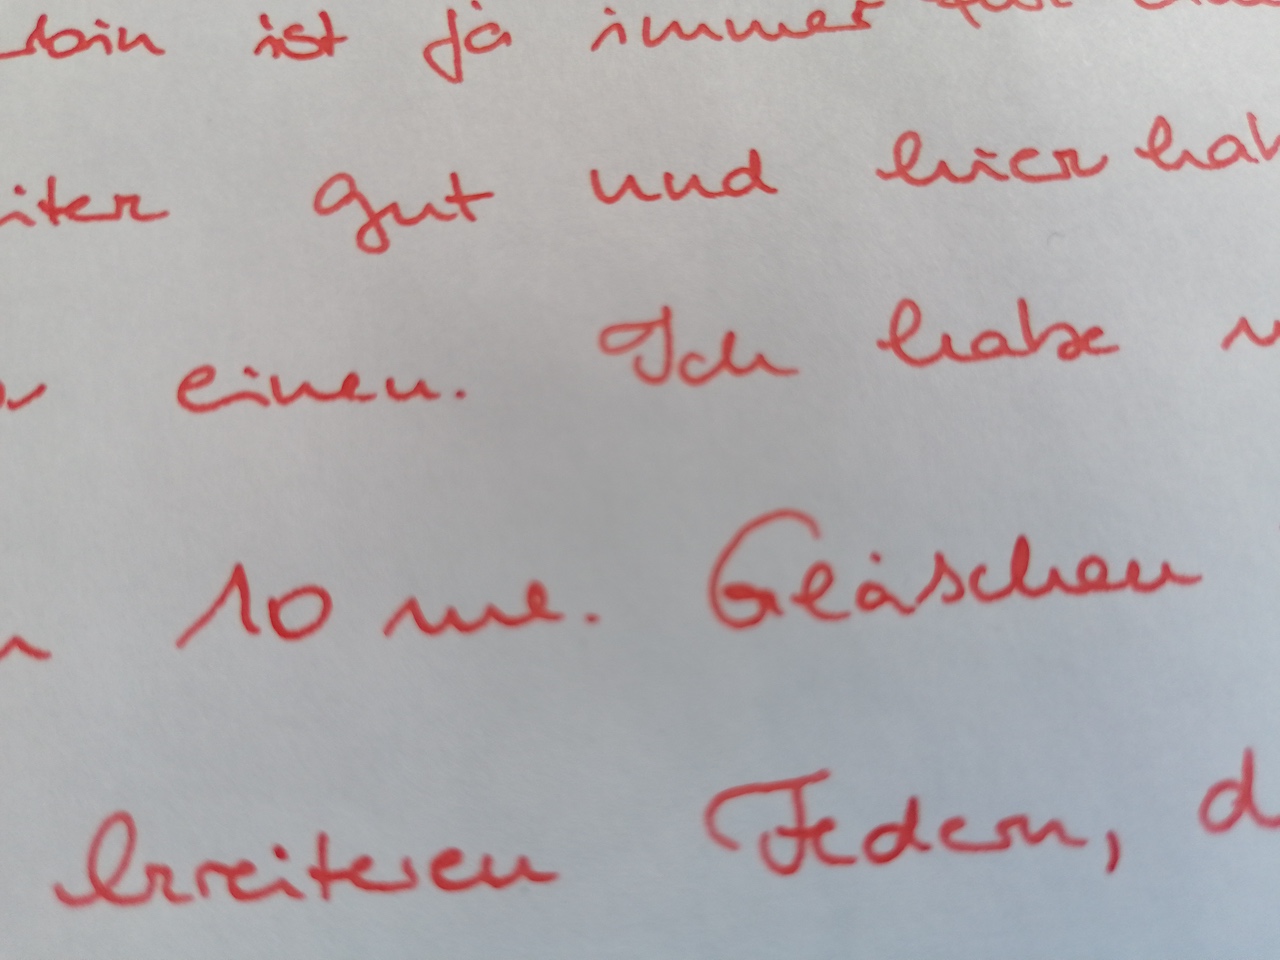 ist ja immer für
gut und hier
einen. Ich habe
10 ml. Gläschen
breiteren Federn,